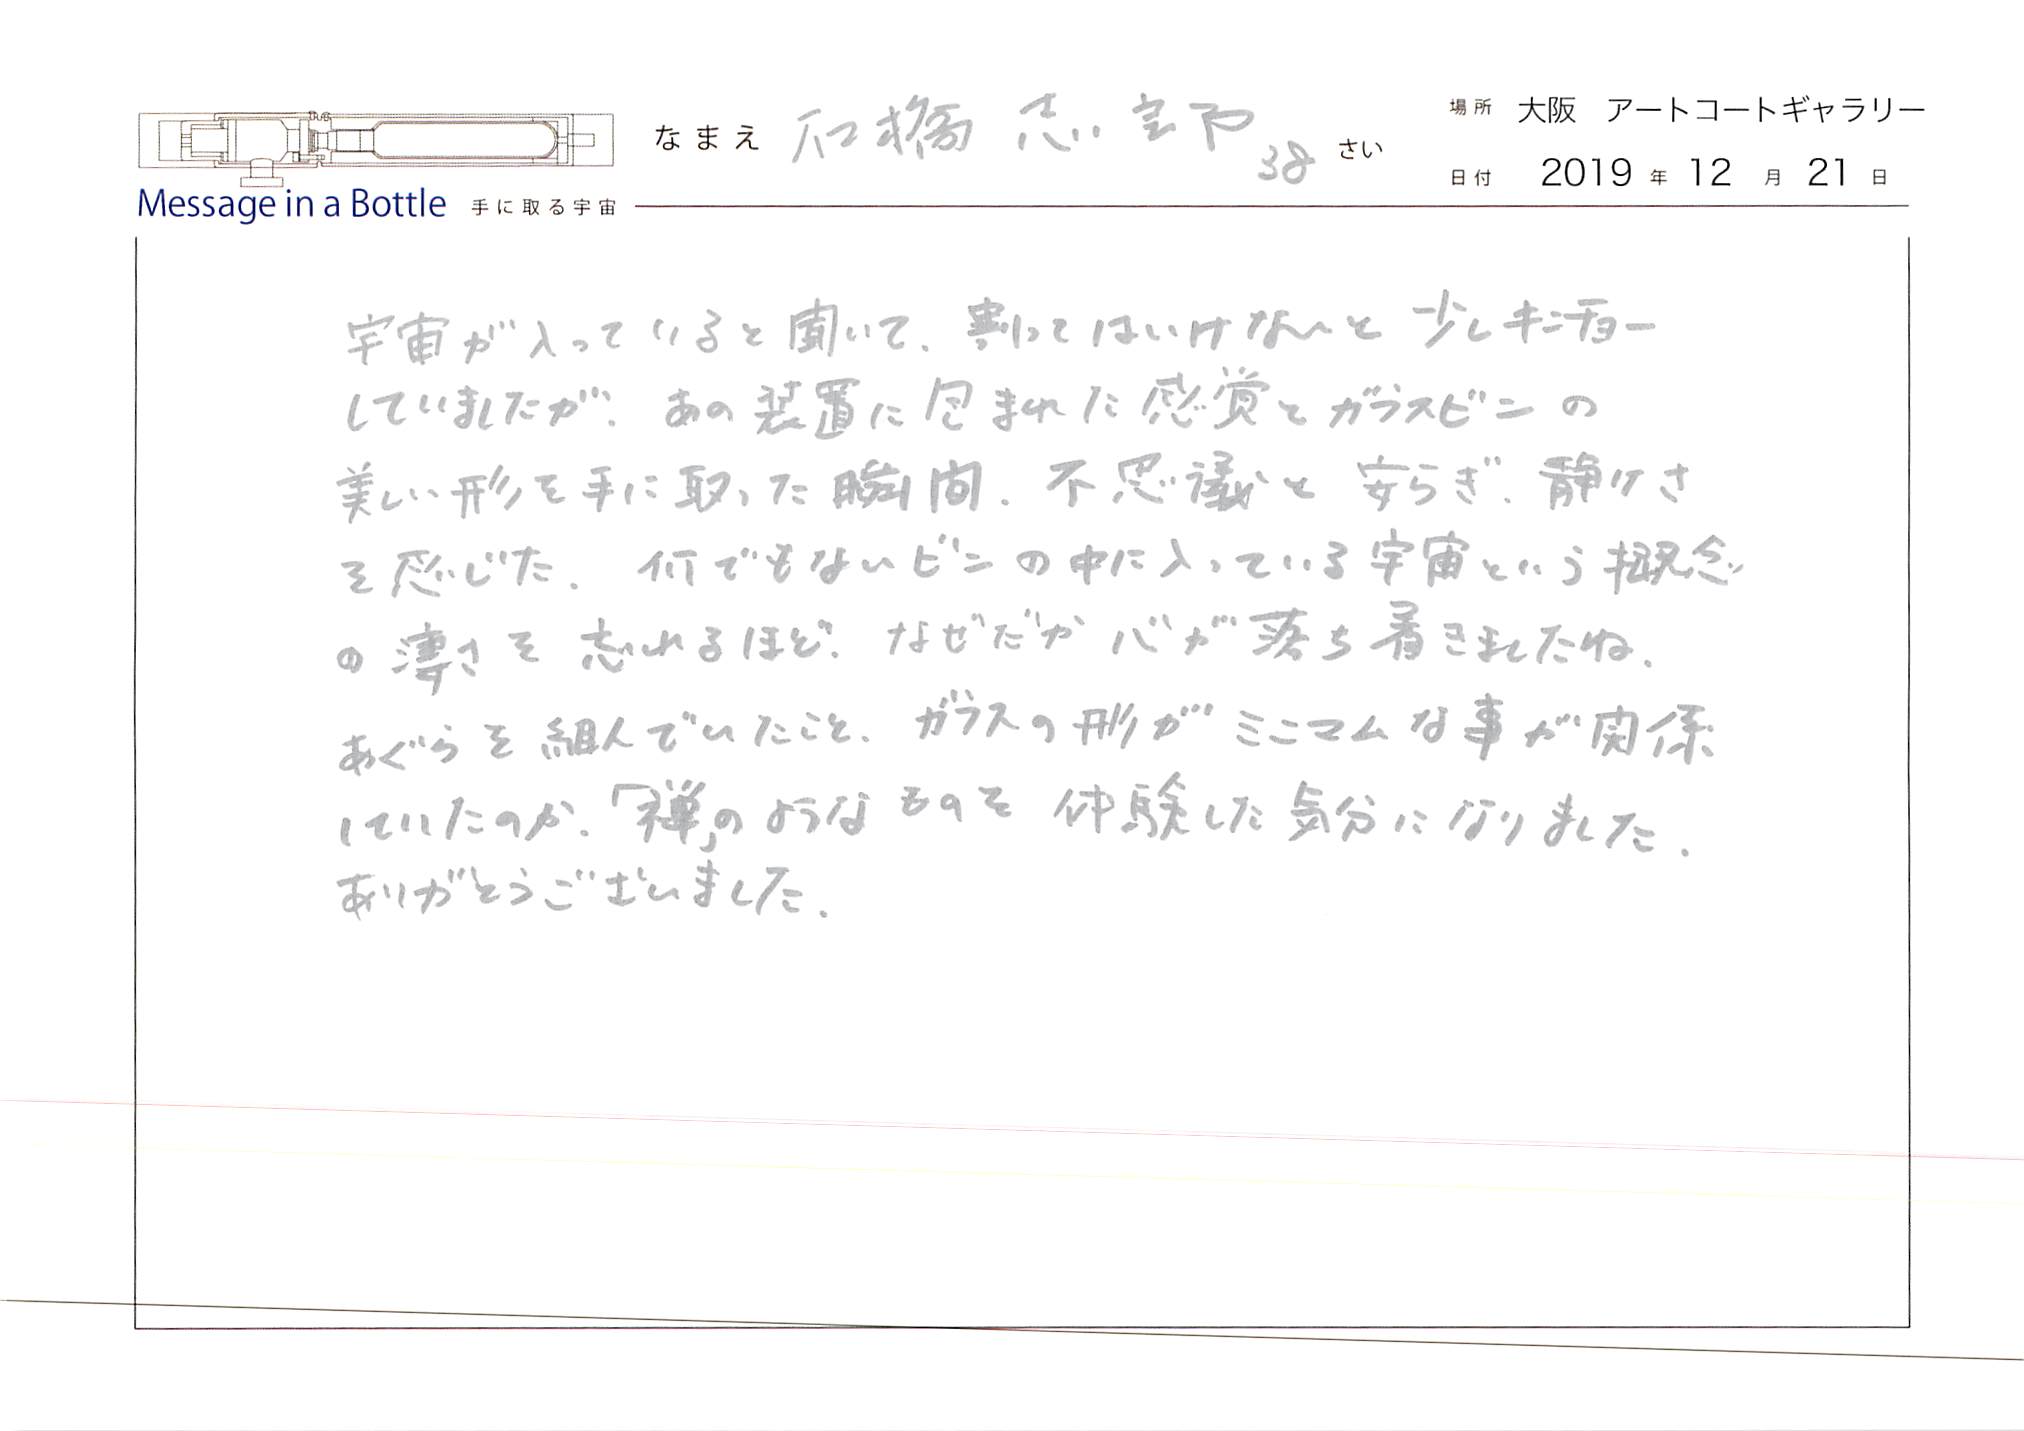 なまえ 石橋 志郎 38 さい
場所 大阪 アートコートギャラリー
日付 2019 年 12 月 21 日
Message in a Bottle 手に取る宇宙
宇宙が入っていると聞いて、割ってはいけないと 少しキンチョー
していましたが、あの装置に包まれた感覚とガラスビンの
美しい形を手に取った瞬間、不思議と 安らぎ、静けさ
を感じた。何でもないビンの中に入っている宇宙という概念
の凄さを 忘れるほど、なぜだか 心が落ち着きましたね。
あぐらを組んでいたこと、ガラスの形がミニマムな事が関係
していたのか、「禅」のようなものを 体験した気分になりました。
ありがとうございました。